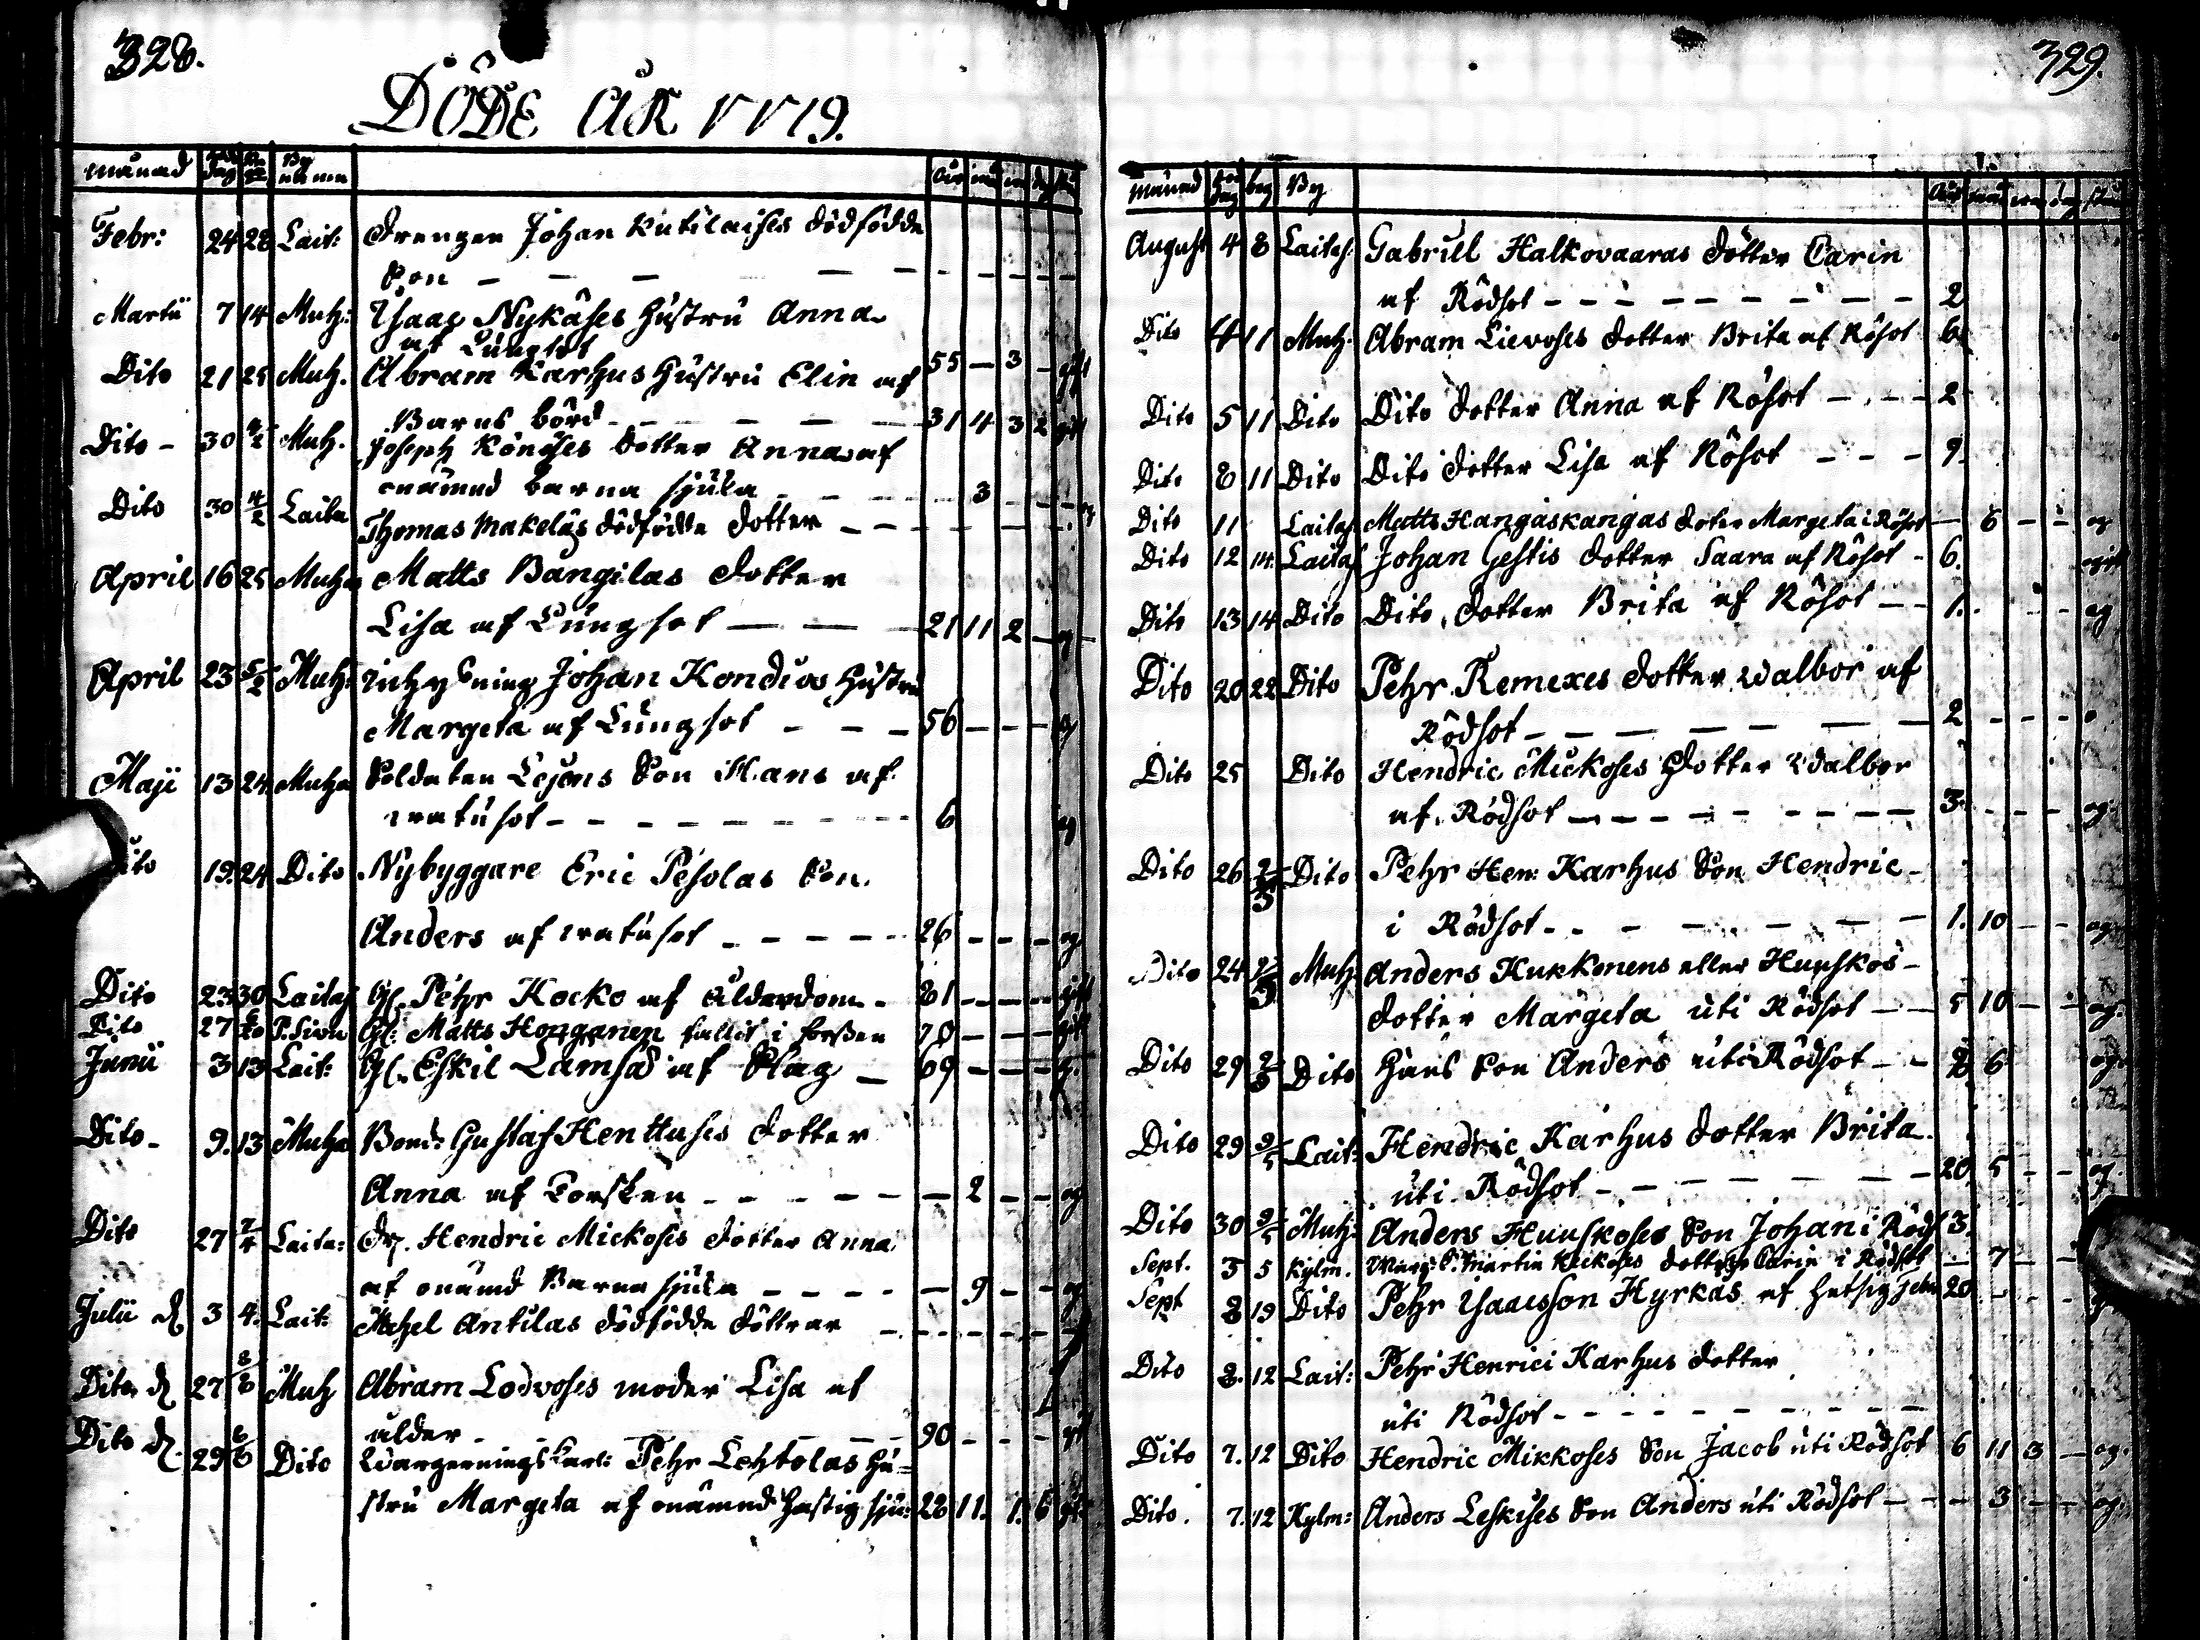 328.
DÖDE ÅR 1779.
månad By
Febr: 24 28 Lait: Drengen Johan Kutilaises dödfödde
Son — — — — —
Martii 7 14 Muh: Isaac Nykäses Hustru Anna
af Lungsot 55 — 3 — gift
Dito 21 25 Muh. Abram Karhus Hustru Elin af
Barns börd 31 4 3 2 gift
Dito - 30 4/2 Muh. Joseph Könöses dotter Anna af
onämnd barna sjuka 3
Dito 30 4/2 Laita Thomas Makeläs dödfödde dotter
April 16 25 Muho Matts Vangilas dotter
Lisa af Lungsot — — — 21 11 2 — og
April 23 5/2 Muh: Johan Kondios Hustru
Margeta af Lungsot - - - 56 — — — g
Maji 13 24 Muho Soldaten Lejons Son Hans af
watusot - - - - 6 og
Dito 19. 24 Dito Nybyggare Eric Pesolas Son.
Anders af watusot - - - - 26 - - - og
Dito 23 30 Laitas Gl. Pehr Kocko af ålderdom - 81 - - - gift
Dito 27 6/20 P.Sivu Gl: Matts Honganen fallit i forssen 70 — — — gift
Junii 3 13 Lait: Gl. Eskil Lamsa af Slag — 69 - - - g.
Dito - 9. 13 Muho Bond: Gustaf Henttuses dotter
Anna af Torsken - - - - — 2 — — og
Dito 27 7/4 Laita: Dr. Hendric Mickoses dotter Anna
af onämd Barna sjuka - - - - — 9 — — og
Julii d 3 4. Lait: Michel Antilas dödfödde döttrar
Dito d 27 8/8 Muh Abram Lodvoses moder Lisa af
ålder 90 - - - gift
Dito d. 29 Dito Wargernings karl: Pehr Lehtolas Hu-
stru Margeta af onämnd hastig sju: 28 11. 1. 6 gift
329.
månad beg By
August 4 8 Laitas: Gabriel Halkovaaras dotter Carin
af Rödsot - - - - 2
Dito 4 11 Muh. Abram Lievoses dotter Brita af Rösot 6
Dito 5 11 Dito Dito dotter Anna af Rösot - - - 2
Dito 8 11 Dito Dito dotter Lisa af Rösot - - - 9.
Dito 11 Laitas Matts Hangaskangas doter Margeta i Rösot — 6 - - og
Dito 12 14. Laitas Johan Gestis dotter Saara af Rösot - 6. ogift
Dito 13 14 Dito Dito, dotter Brita af Rösot - - 1. og
Dito 20 22 Dito Pehr Remexes dotter Walbor af
Rödsot — — — — 2 - - - o
Dito 25 Dito Hendric Mickoses Dotter Walbor
af Rödsot — - - - 3. og:
Dito 26 2/5 Dito Pehr Hen: Karhus Son Hendric -
i Rödsot - - — — 1. 10 — — og
Dito 24 2/5 Muh Anders Hukkonens eller Huuskos -
dotter Margeta uti Rödsot — — 5 10 — — og.
Dito 29 2/5 Dito Hans Son Anders uti Rödsot - - 8. 6 og
Dito 29 2/5 Lait: Hendric Karhus dotter Brita
uti Rödsot - — — — 20 5 - - og
Dito 30 2/5 Muh: Anders Huuskoses Son Johan i Röds 3.
Sept. 3 5 Kylm. Martin Kickoses dotter Carin i Rödsot — 7 — —
Sept 8 19 Dito Pehr Isaacsson Hyrkas af 20
Dito 8. 12 Lait: Pehr Henrici Karhus dotter
uti Rödsot - - - -
Dito 7. 12 Dito Hendric Mikkoses Son Jacob uti Rödsot 6 11 3 — og.
Dito. 7. 12 Kylm: Anders Leskises Son Anders uti Rödsot - - - 3 - - og.